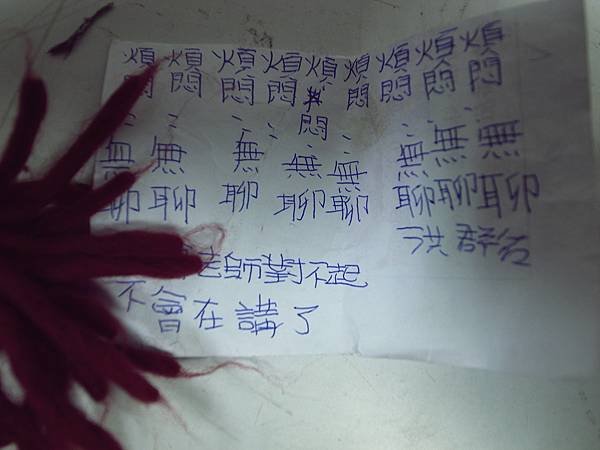 煩煩煩煩煩煩煩煩煩
悶悶悶悶悶悶悶悶悶
無無無無無無無無
聊聊聊聊聊聊聊聊
洪群名
老師對不起
不會在講了